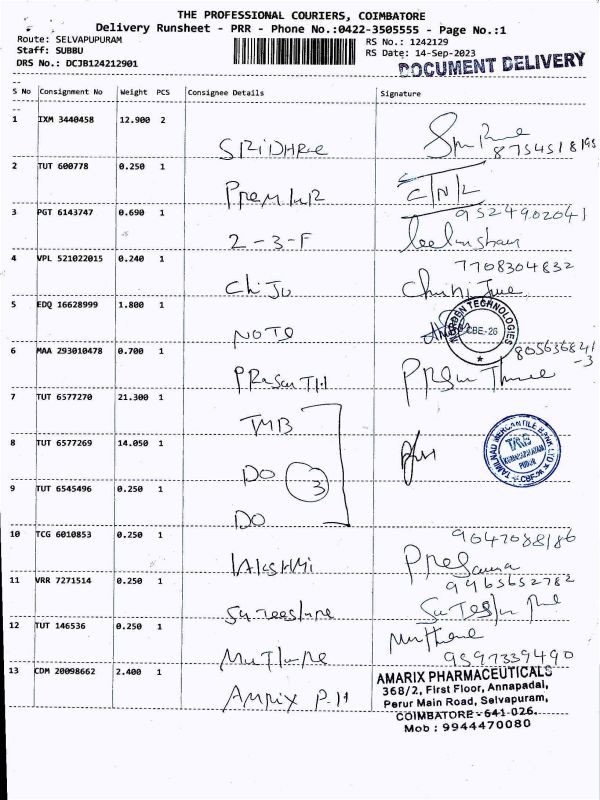 THE PROFESSIONAL COURIERS, COIMBATORE
Delivery Runsheet - PRR - Phone No.:0422-3505555 - Page No.:1
Route: SELVAPUPURAM
Staff: SUBBU
DRS No.: DCJB124212901
RS No.: 1242129
RS Date: 14-Sep-2023
DOCUMENT DELIVERY
S No Consignment No Weight PCS Consignee Details Signature
1 IXM 3440458 12.900 2
2 TUT 600778 0.250 1
3 PGT 6143747 0.690 1 2-3-F
9524902041
4 VPL 521022015 0.240 1 ChiJu
7708304832
5 EDQ 16628999 1.800 1
CBE-26
6 MAA 293010478 0.700 1
7 TUT 6577270 21.300 1 TMB
8 TUT 6577269 14.050 1 DO 3
TAMILNAD MERCANTILE BANK LTD
9 TUT 6545496 0.250 1 DO
10 TCG 6010853 0.250 1 LAKSHMI
11 VRR 7271514 0.250 1
9465652782
12 TUT 146536 0.250 1
9597339490
13 CDM 20098662 2.400 1
AMARIX PHARMACEUTICALS
368/2, First Floor, Annapadai,
Perur Main Road, Selvapuram,
COIMBATORE - 641 026.
Mob : 9944470080